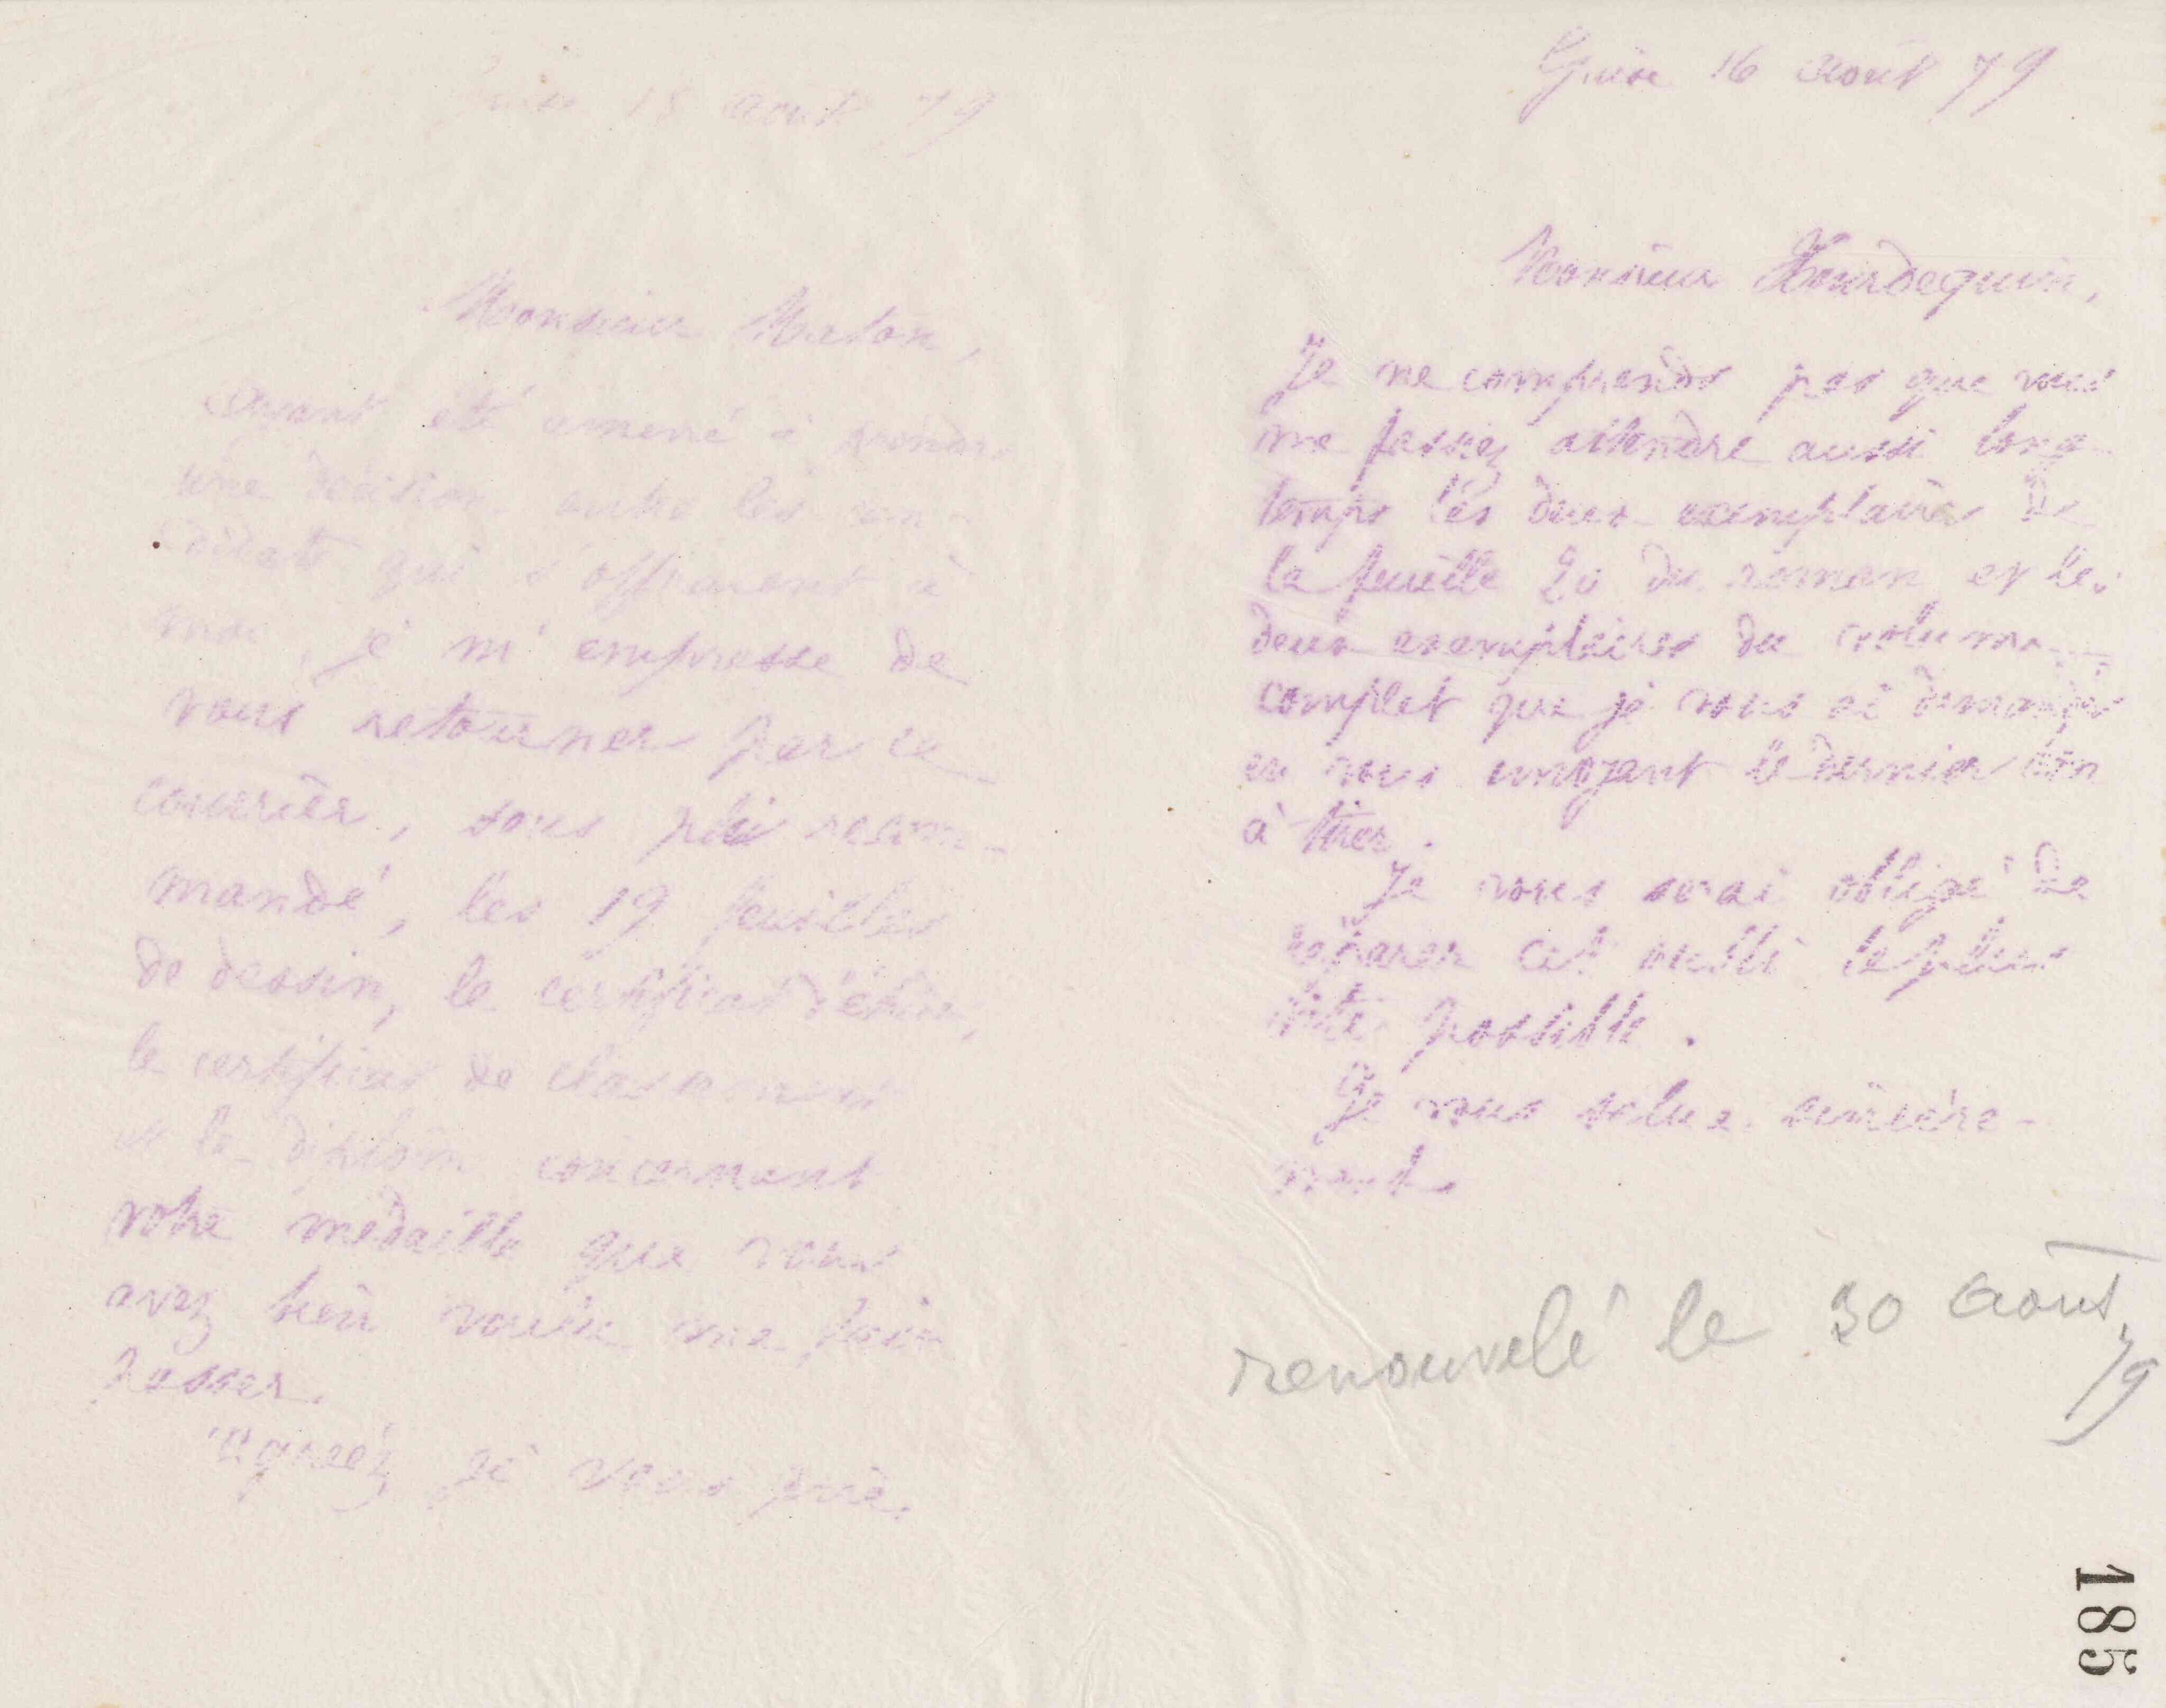 Guise 18 août 79
Monsieur Maton,
Ayant été amené à prendre
une décision entre les can-
didats qui s'offraient à
moi, je m'empresse de
vous retourner par ce
courrier, sous pli recom-
mandé, les 19 feuilles
de dessin, le certificat d'études,
le certificat de classement
et le diplôme concernant
votre médaille que vous
avez bien voulu me faire
passer.
Agréez je vous prie,
Guise 16 août 79
Monsieur Hourdequin,
Je ne comprends pas que vous
me fassiez attendre aussi long-
temps les deux exemplaires de
la feuille 20 du roman et les
deux exemplaires du volume
complet que je vous ai demandés
en vous envoyant le dernier bon
à tirer.
Je vous serai obligé de
réparer cet oubli le plus
vite possible.
Je vous salue sincère-
ment.
renouvelé le 30 août
79
185